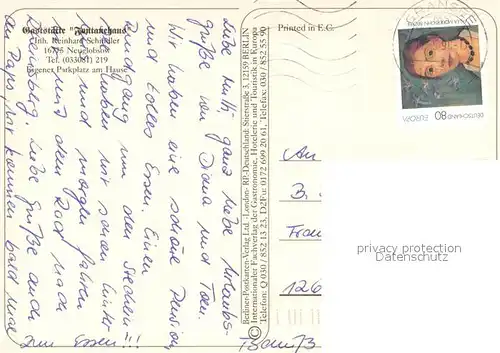 Gaststätte "Fontanehaus"
Inh. Reinhard Schindler
16775 Neuglobsow
Tel. (033081) 219
Eigener Parkplatz am Hause
Liebe Mutti, ganz liebe Urlaubs-
grüße von Diana und Tom.
Wir haben eine schöne Pension
und tolles Essen. Einen
Rundgang um den Stechlin
haben wir schon hinter
uns und morgen fahren
wir mit dem Rad nach
Rheinsberg. Liebe Grüße auch
an Papa, wir kommen bald mal
zum Essen!!!
Berliner-Postkarten-Verlag Ltd. -London- RP-Deutschland: Stierstraße 3, 12159 BERLIN
Internationaler Fachverlag der Gastronomie, Hotelerie und Touristik in Europa
Telefon: Q 030 / 852 13 23, D2Fu: 0172 699 20 61, Telefax: 030 / 852 55 90
©
Printed in E.C.
GRANSEE
DEUTSCHLAND
EUROPA
80
An
B.
Frau
126
privacy protection
Datenschutz